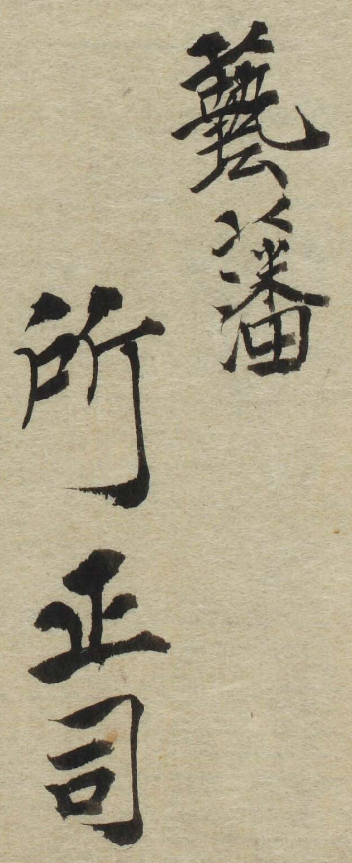 藝藩
所正司